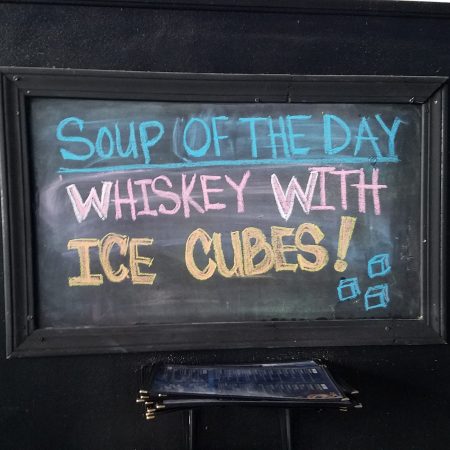 SOUP OF THE DAY
WHISKEY WITH
ICE CUBES!